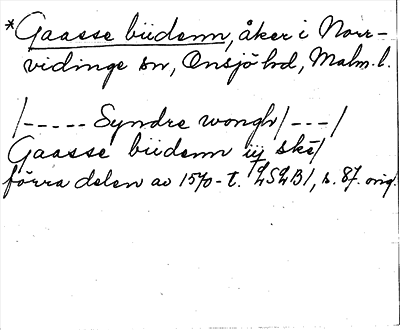 *Gaasse büdenn, åker i Norr-
vidinge sn, Onsjö hd, Malm. l.
/----- Syndre wongh/---/
Gaasse büdenn iij skē/
förra delen av 1570-t. LSLB1, s. 87. orig.